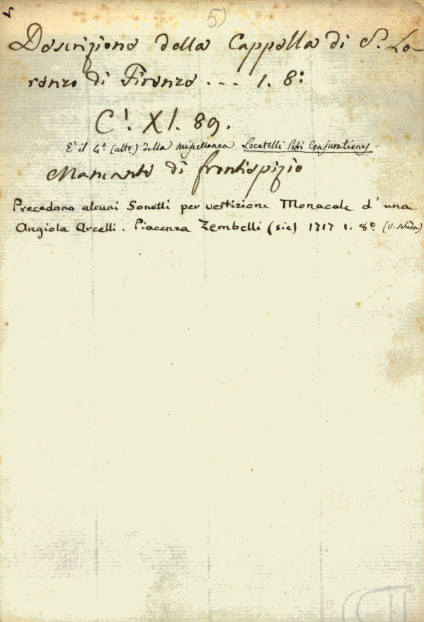 5)
Descrizione della Cappella di S. Lo-
renzo di Firenze ... 1. 8:
C! XI. 89.
E' il 4º (ulto) della miscellanea Locatelli Conjurationes
Mancante di frontispizio
Precedono alcuni Sonetti per vestizione Monacale d'una
Angiola Arcelli. Piacenza Zembelli (sic) 1717 1. 8º (V. scheda)